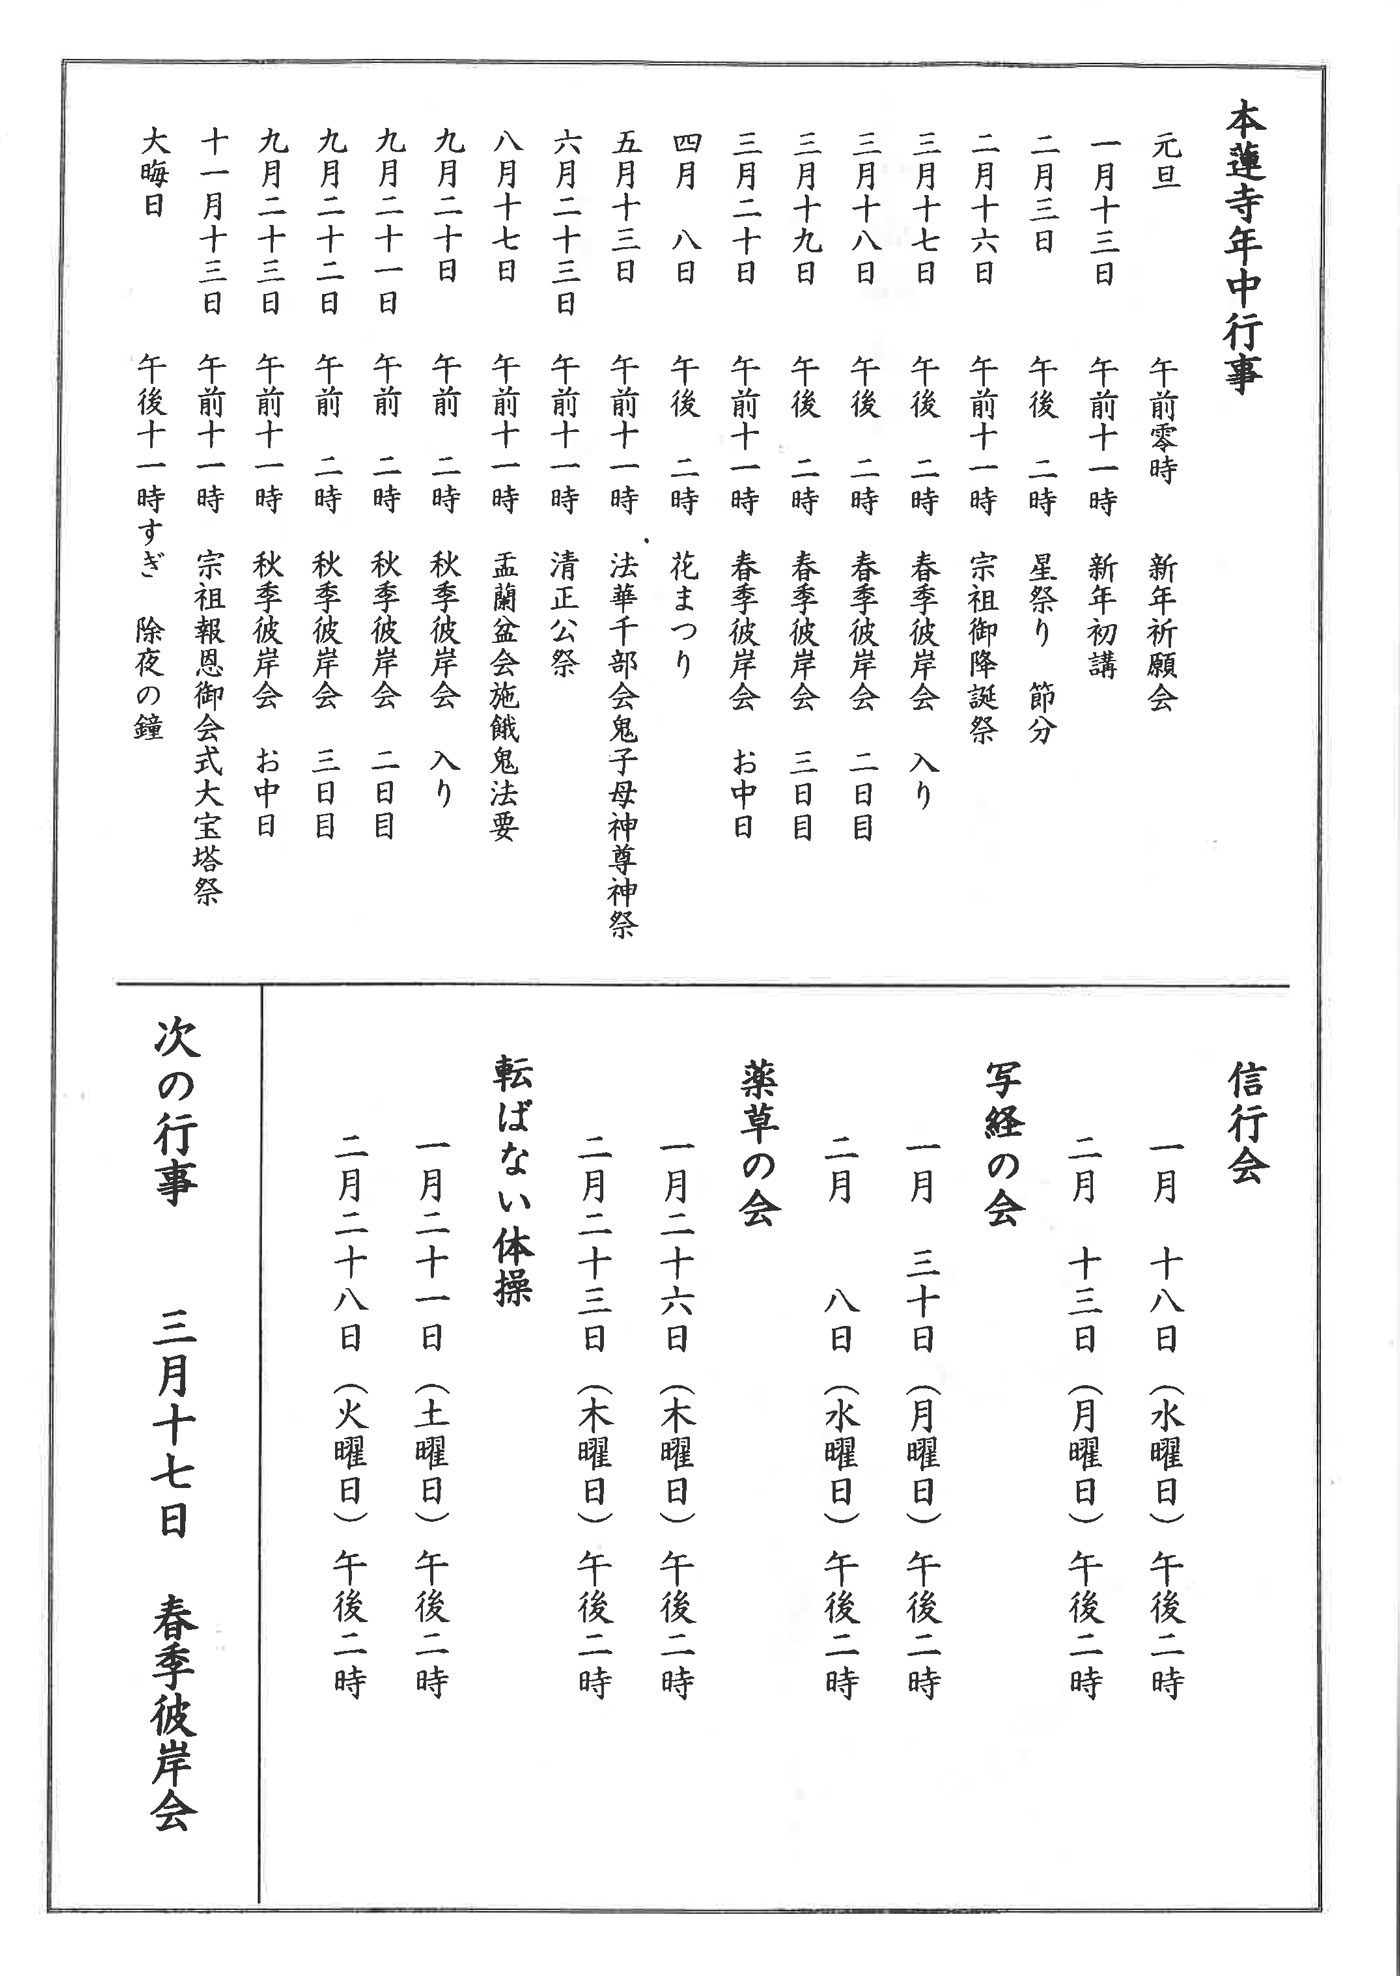 本蓮寺年中行事
元旦　午前零時　新年祈願会
一月十三日　午前十一時　新年初講
二月三日　午後　二時　星祭り　節分
二月十六日　午前十一時　宗祖御降誕祭
三月十七日　午後　二時　春季彼岸会　入り
三月十八日　午後　二時　春季彼岸会　二日目
三月十九日　午後　二時　春季彼岸会　三日目
三月二十日　午前十一時　春季彼岸会　お中日
四月　八日　午後　二時　花まつり
五月十三日　午前十一時　法華千部会鬼子母神尊神祭
六月二十三日　午前十一時　清正公祭
八月十七日　午前十一時　盂蘭盆会施餓鬼法要
九月二十日　午前　二時　秋季彼岸会　入り
九月二十一日　午前　二時　秋季彼岸会　二日目
九月二十二日　午前　二時　秋季彼岸会　三日目
九月二十三日　午前十一時　秋季彼岸会　お中日
十一月十三日　午前十一時　宗祖報恩御会式大宝塔祭
大晦日　午後十一時すぎ　除夜の鐘
信行会
一月　十八日（水曜日）午後二時
二月　十三日（月曜日）午後二時
写経の会
一月　三十日（月曜日）午後二時
二月　　八日（水曜日）午後二時
薬草の会
一月二十六日（木曜日）午後二時
二月二十三日（木曜日）午後二時
転ばない体操
一月二十一日（土曜日）午後二時
二月二十八日（火曜日）午後二時
次の行事　　三月十七日　春季彼岸会